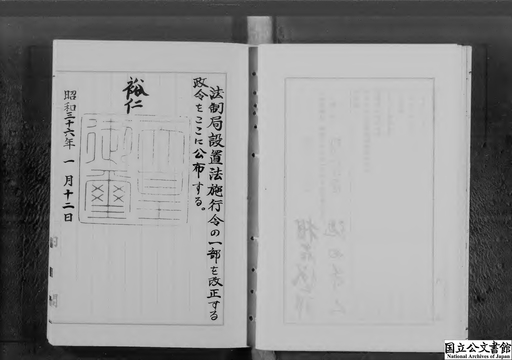 法制局設置法施行令の一部を改正する
政令をここに公布する。
裕仁
天皇
御璽
昭和三十六年一月十二日
国立公文書館
National Archives of Japan